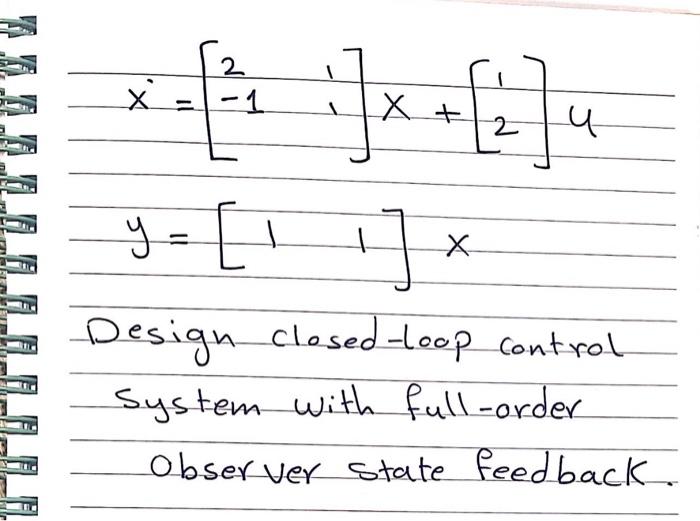 ẋ = [2 1; -1 1] x + [1; 2] u
y = [1 1] x
Design closed-loop control
system with full-order
Observer state feedback.